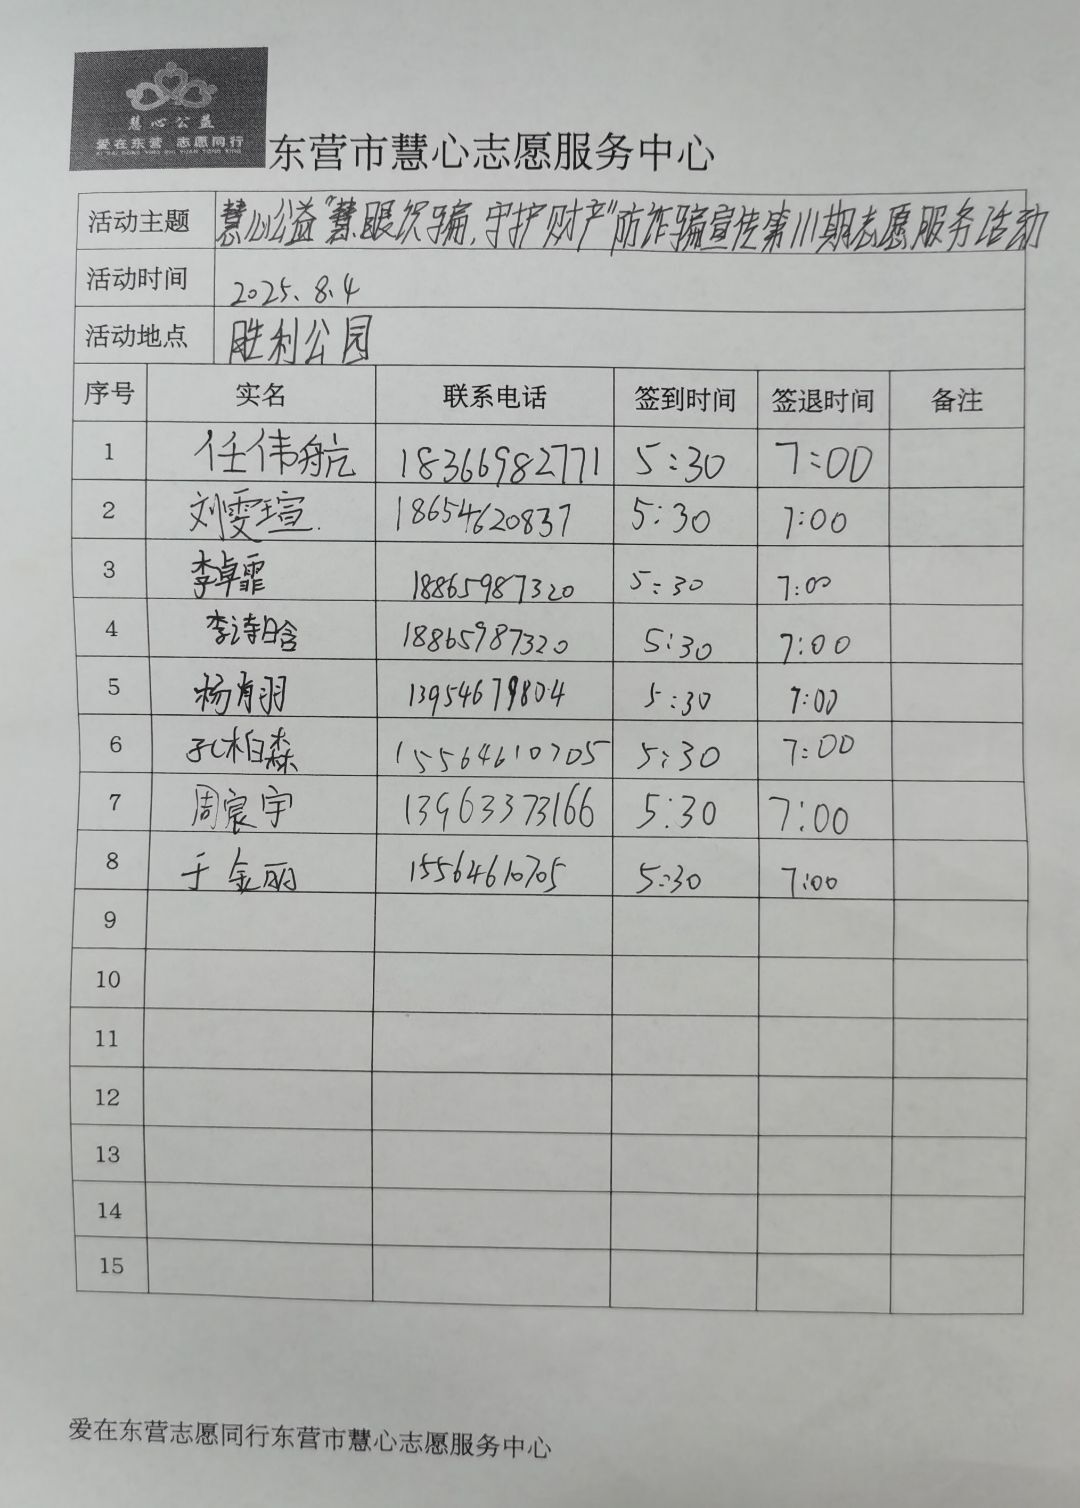 慧心公益
爱在东营 志愿同行
东营市慧心志愿服务中心
活动主题 慧心公益"慧眼识骗,守护财产"防诈骗宣传第111期志愿服务活动
活动时间 2025.8.4
活动地点 胜利公园
序号 实名 联系电话 签到时间 签退时间 备注
1 任伟航 18366982771 5:30 7:00
2 刘雯瑄. 18654620837 5:30 7:00
3 李卓霏 18865987320 5:30 7:00
4 李诗晗 18865987320 5:30 7:00
5 杨肖羽 13954679804 5:30 7:00
6 孔柏森 15564610705 5:30 7:00
7 周宸宇 13963373166 5:30 7:00
8 于金丽 15564610705 5:30 7:00
9
10
11
12
13
14
15
爱在东营志愿同行东营市慧心志愿服务中心